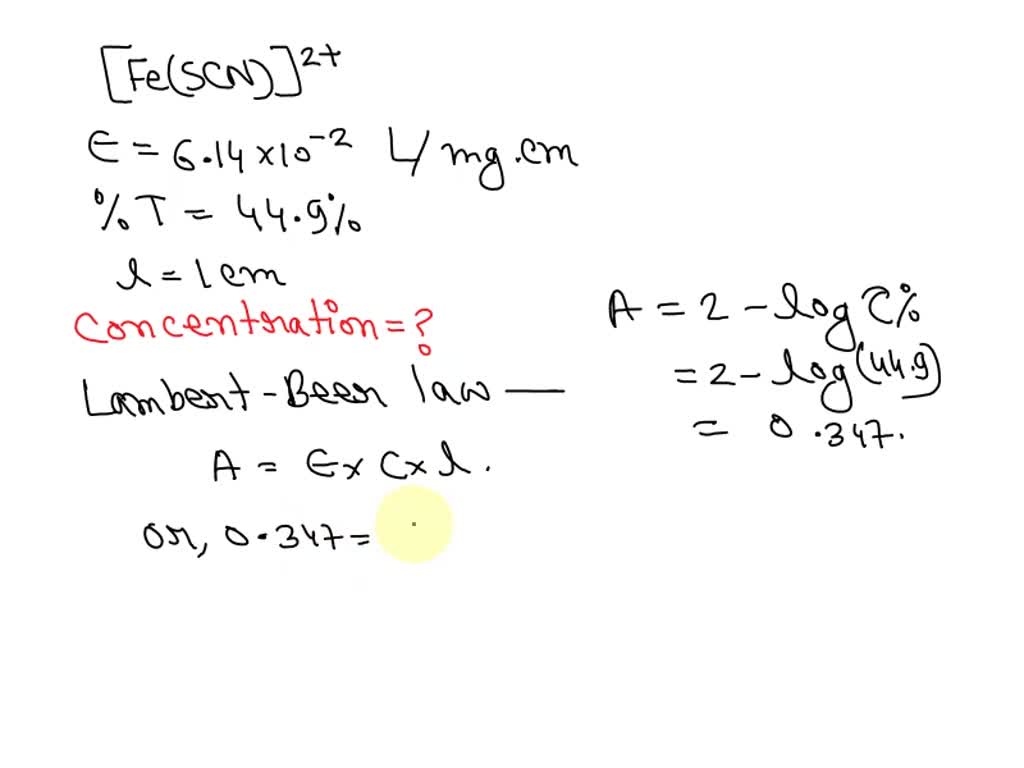 [Fe(SCN)]²⁺
ϵ = 6.14×10⁻² L/mg.cm
%T = 44.9%
l = 1cm
Concentration = ?
Lambert-Beer law —
A = ϵ × C × l .
or, 0.347 =
A = 2 - log τ%
= 2 - log (44.9)
= 0.347.